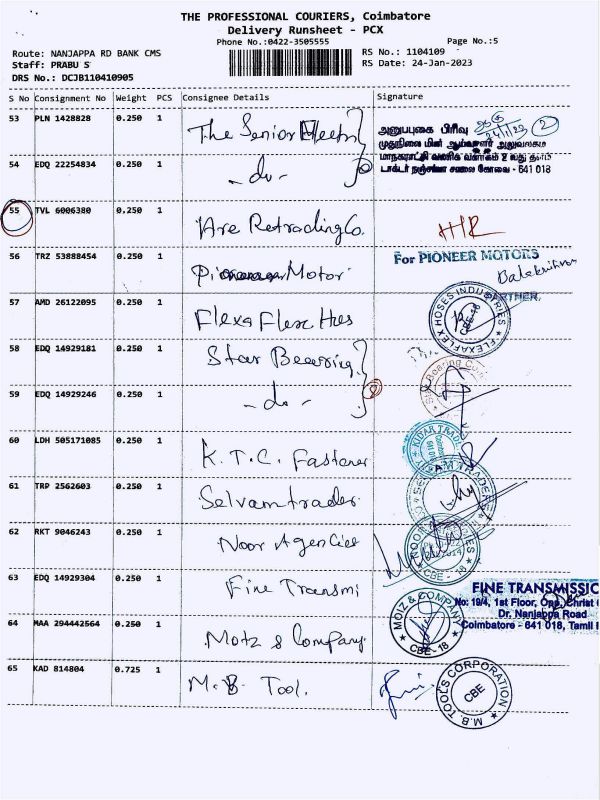 THE PROFESSIONAL COURIERS, Coimbatore
Delivery Runsheet - PCX
Phone No.:0422-3505555
Page No.:5
Route: NANJAPPA RD BANK CMS
RS No.: 1104109
Staff: PRABU S
RS Date: 24-Jan-2023
DRS No.: DCJB110410905
S No Consignment No Weight PCS Consignee Details Signature
53 PLN 1428828 0.250 1 The Senior
அனுப்புகை பிரிவு 24/1/23 2
முதுநிலை மின் ஆய்வாளர் அலுவலகம்
மாநகராட்சி வணிக வளாகம் 2 வது தளம்
டாக்டர் நஞ்சப்பா சாலை கோவை - 641 018
54 EDQ 22254834 0.250 1 - do -
55 TVL 6006380 0.250 1 Are Retrading Co.
56 TRZ 53888454 0.250 1 Motor
For PIONEER MOTORS
Balakrishnan
PARTNER.
57 AMD 26122095 0.250 1 Flexa Flex Hses
FLEXAFLEX HOSES INDUSTRIES
CBE-18
58 EDQ 14929181 0.250 1 Star Bearing
59 EDQ 14929246 0.250 1 - do - 2
60 LDH 505171085 0.250 1 K.T.C. Fastener
61 TRP 2562603 0.250 1 Selvamtrader
62 RKT 9046243 0.250 1 Noor Agencies
CBE - 18
63 EDQ 14929304 0.250 1 Fine Transmi
FINE TRANSMISSIO
No: 19/4, 1st Floor, Opp. Christ
Dr. Nanjappa Road
Coimbatore - 641 018, Tamil
64 MAA 294442564 0.250 1 Motz & Company.
MOIZ & COMPANY
CBE - 18
65 KAD 814804 0.725 1 M.B. Tool.
M.B. TOOLS CORPORATION
CBE